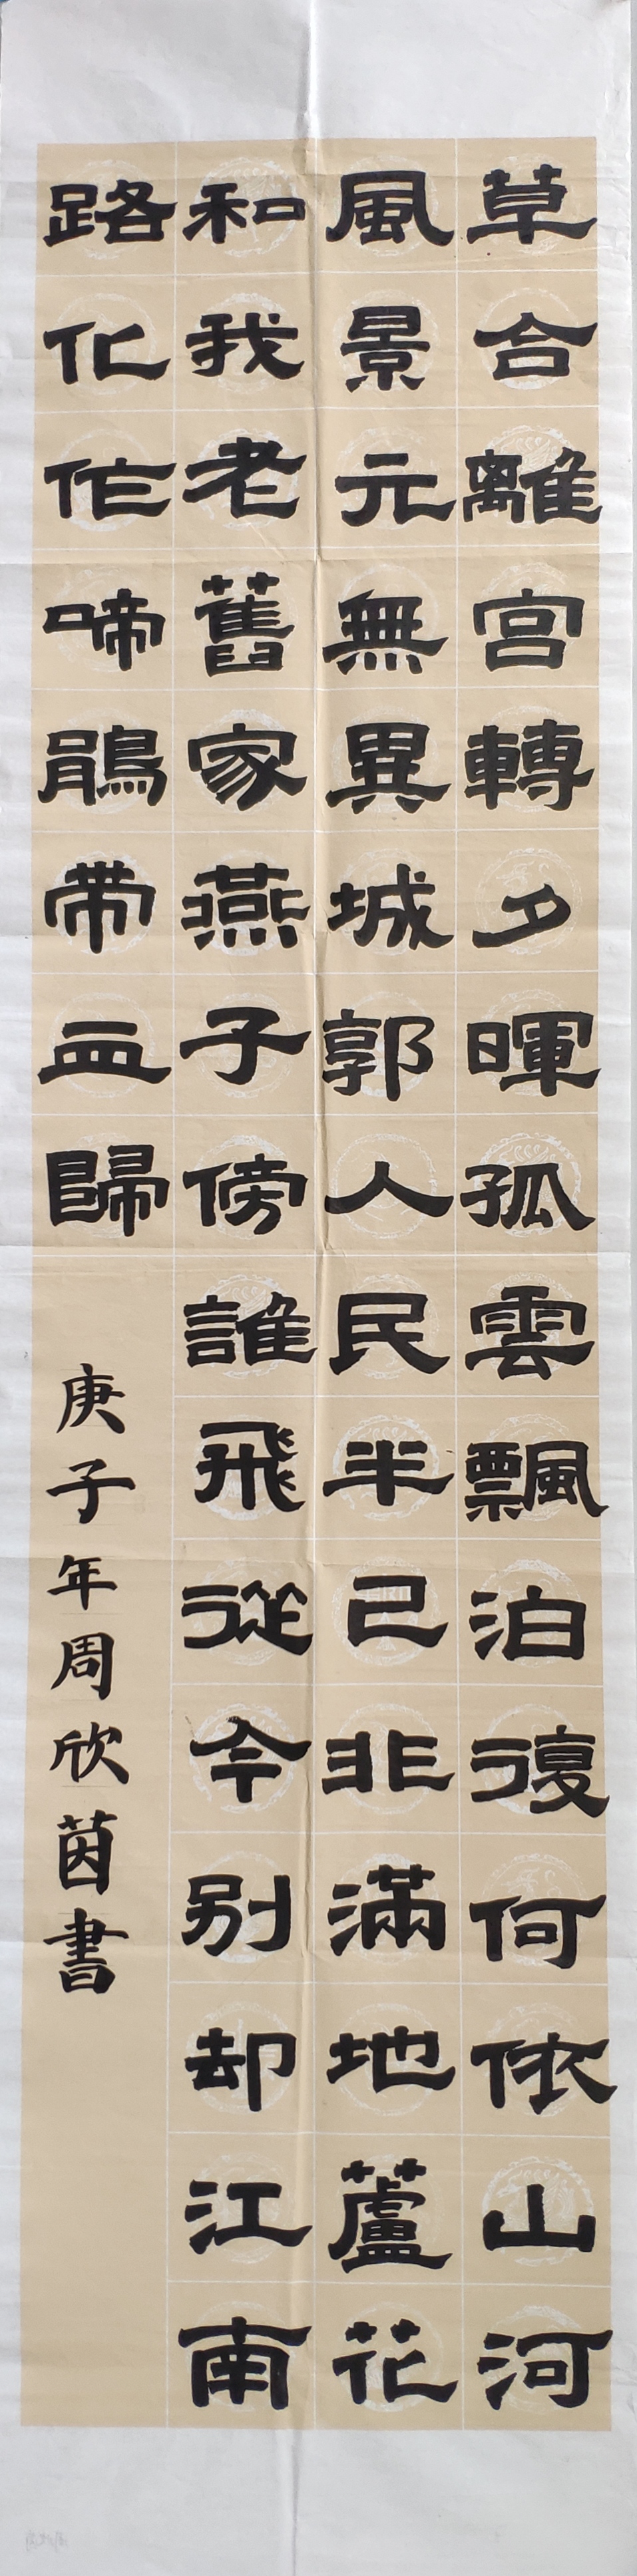 草合離宮轉夕暉孤雲飄泊復何依山河
風景元無異城郭人民半已非滿地蘆花
和我老舊家燕子傍誰飛從今别却江南
路化作啼鵑帶血歸
庚子年周欣茵書